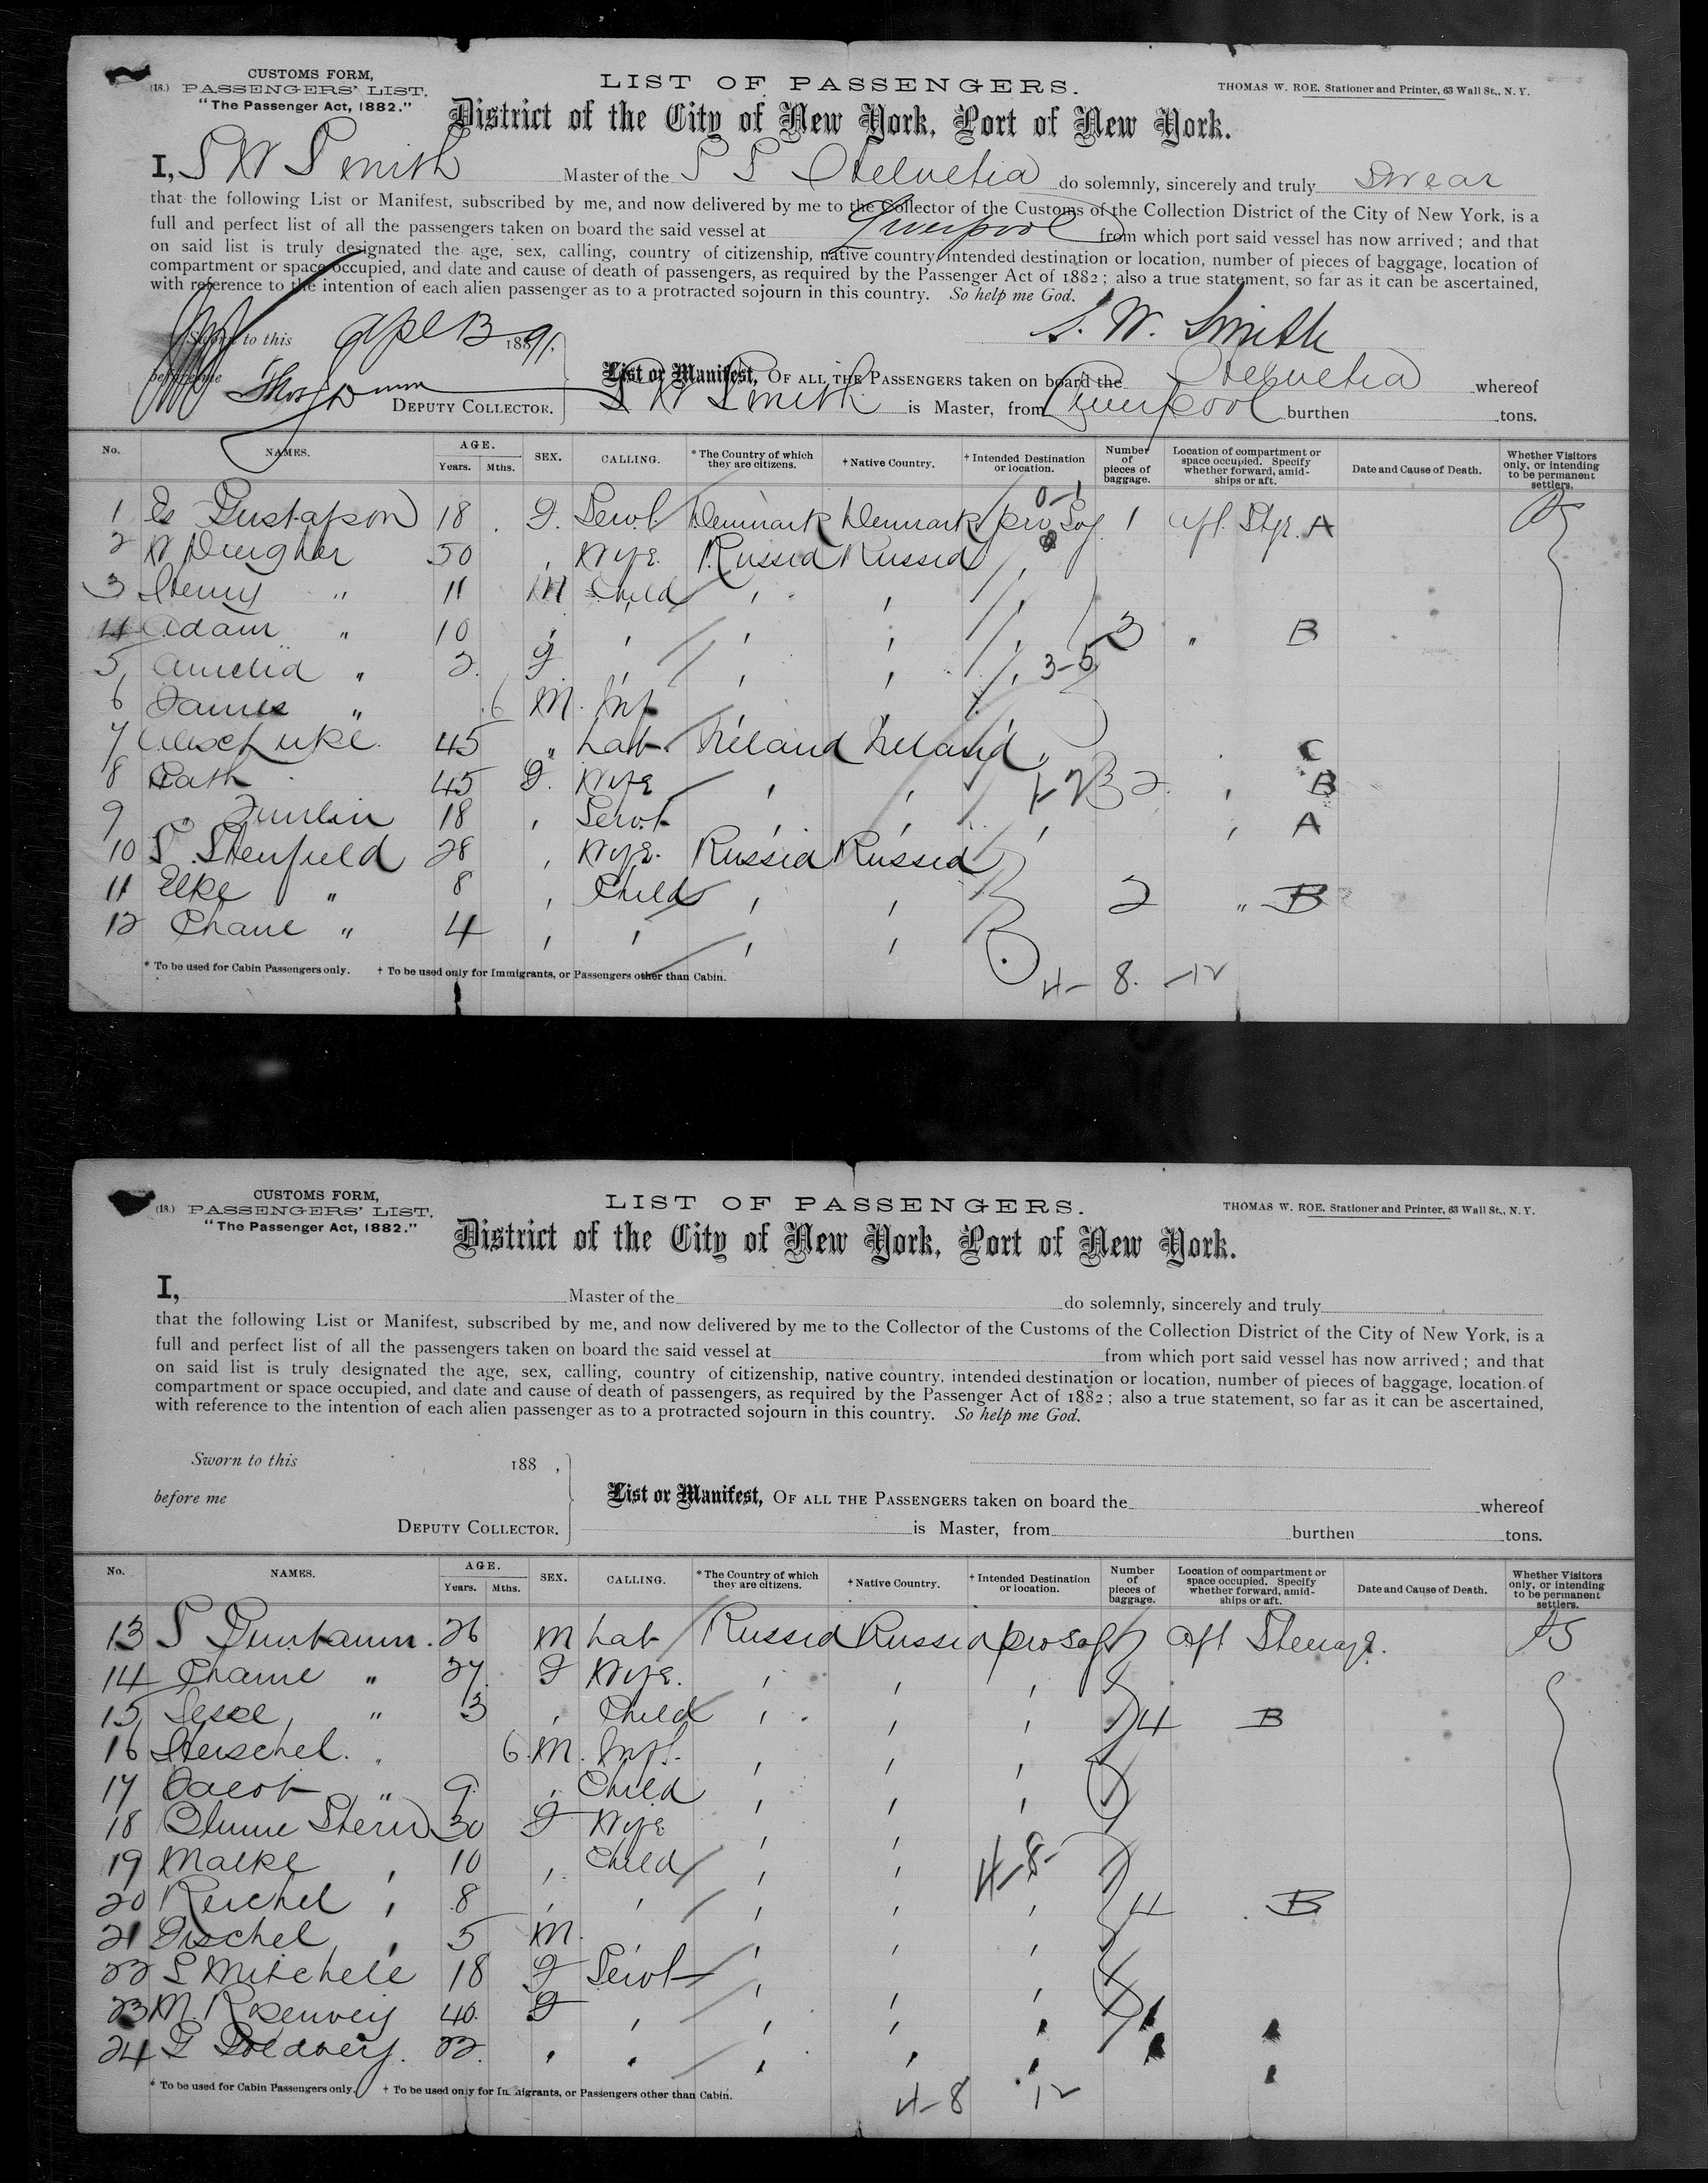 CUSTOMS FORM,
(18.) PASSENGERS' LIST.
"The Passenger Act, 1882."
LIST OF PASSENGERS.
THOMAS W. ROE. Stationer and Printer, 63 Wall St., N. Y.
District of the City of New York, Port of New York.
I, S W Smith Master of the S S Helvetia do solemnly, sincerely and truly swear
that the following List or Manifest, subscribed by me, and now delivered by me to the Collector of the Customs of the Collection District of the City of New York, is a
full and perfect list of all the passengers taken on board the said vessel at Liverpool from which port said vessel has now arrived; and that
on said list is truly designated the age, sex, calling, country of citizenship, native country, intended destination or location, number of pieces of baggage, location of
compartment or space occupied, and date and cause of death of passengers, as required by the Passenger Act of 1882; also a true statement, so far as it can be ascertained,
with reference to the intention of each alien passenger as to a protracted sojourn in this country. So help me God.
S. W. Smith
Sworn to this Apl 13 1891.
before me
List or Manifest, OF ALL THE PASSENGERS taken on board the Helvetia whereof
DEPUTY COLLECTOR.
S W Smith is Master, from Liverpool burthen tons.
No. NAMES. AGE. Years. Mths. SEX. CALLING. * The Country of which they are citizens. † Native Country. † Intended Destination or location. Number of pieces of baggage. Location of compartment or space occupied. Specify whether forward, amid-ships or aft. Date and Cause of Death. Whether Visitors only, or intending to be permanent settlers.
0-1
1 Gustafson 18 F. Servt. Denmark Denmark pro Soj. 1 aft Stge. A
2 50 , Wife. Russia Russia ,
3 Henry " 11 M Child , , ,
4 Adam " 10 , , , , , 3 " B
5 Amelia " 2. F. , , , , 3-5
6 James " 6 M. Inf. , , ,
7 45 " Lab. Ireland Ireland , C
8 Cath 45 F. Wife , , 1-2 2 , B
9 " 18 , Servt. , , , , A
10 S Stenfield 28 , Wife. Russia Russia
11 Elke " 8 , Child , , 2 " B
12 Chane " 4 , , , ,
* To be used for Cabin Passengers only. † To be used only for Immigrants, or Passengers other than Cabin.
4- 8. -12
CUSTOMS FORM,
(18.) PASSENGERS' LIST.
"The Passenger Act, 1882."
LIST OF PASSENGERS.
THOMAS W. ROE. Stationer and Printer, 63 Wall St., N. Y.
District of the City of New York, Port of New York.
I, Master of the do solemnly, sincerely and truly
that the following List or Manifest, subscribed by me, and now delivered by me to the Collector of the Customs of the Collection District of the City of New York, is a
full and perfect list of all the passengers taken on board the said vessel at from which port said vessel has now arrived; and that
on said list is truly designated the age, sex, calling, country of citizenship, native country, intended destination or location, number of pieces of baggage, location of
compartment or space occupied, and date and cause of death of passengers, as required by the Passenger Act of 1882; also a true statement, so far as it can be ascertained,
with reference to the intention of each alien passenger as to a protracted sojourn in this country. So help me God.
Sworn to this 188 ,
before me
List or Manifest, OF ALL THE PASSENGERS taken on board the whereof
DEPUTY COLLECTOR.
is Master, from burthen tons.
No. NAMES. AGE. Years. Mths. SEX. CALLING. * The Country of which they are citizens. † Native Country. † Intended Destination or location. Number of pieces of baggage. Location of compartment or space occupied. Specify whether forward, amid-ships or aft. Date and Cause of Death. Whether Visitors only, or intending to be permanent settlers.
13 S 26 M Lab Russia Russia pro Soj aft Steerage.
14 Chame " 27. F Wife. , , ,
15 " 3 , Child , , , 4 B
16 Herschel. " 6. M. Inft. , , ,
17 Jacob " 9. , Child , , ,
18 Blume Stern 30 F Wife , ,
19 Malke , 10 , Child , , 4-8-
20 Reichel , 8 , , , , , 4 B
21 Fischel , 5 M. , , ,
22 S Mitchele 18 F Servt , , ,
23 M Rosenveig 40. F , , , ,
24 22. , , , , ,
* To be used for Cabin Passengers only. † To be used only for Immigrants, or Passengers other than Cabin.
4-8 12